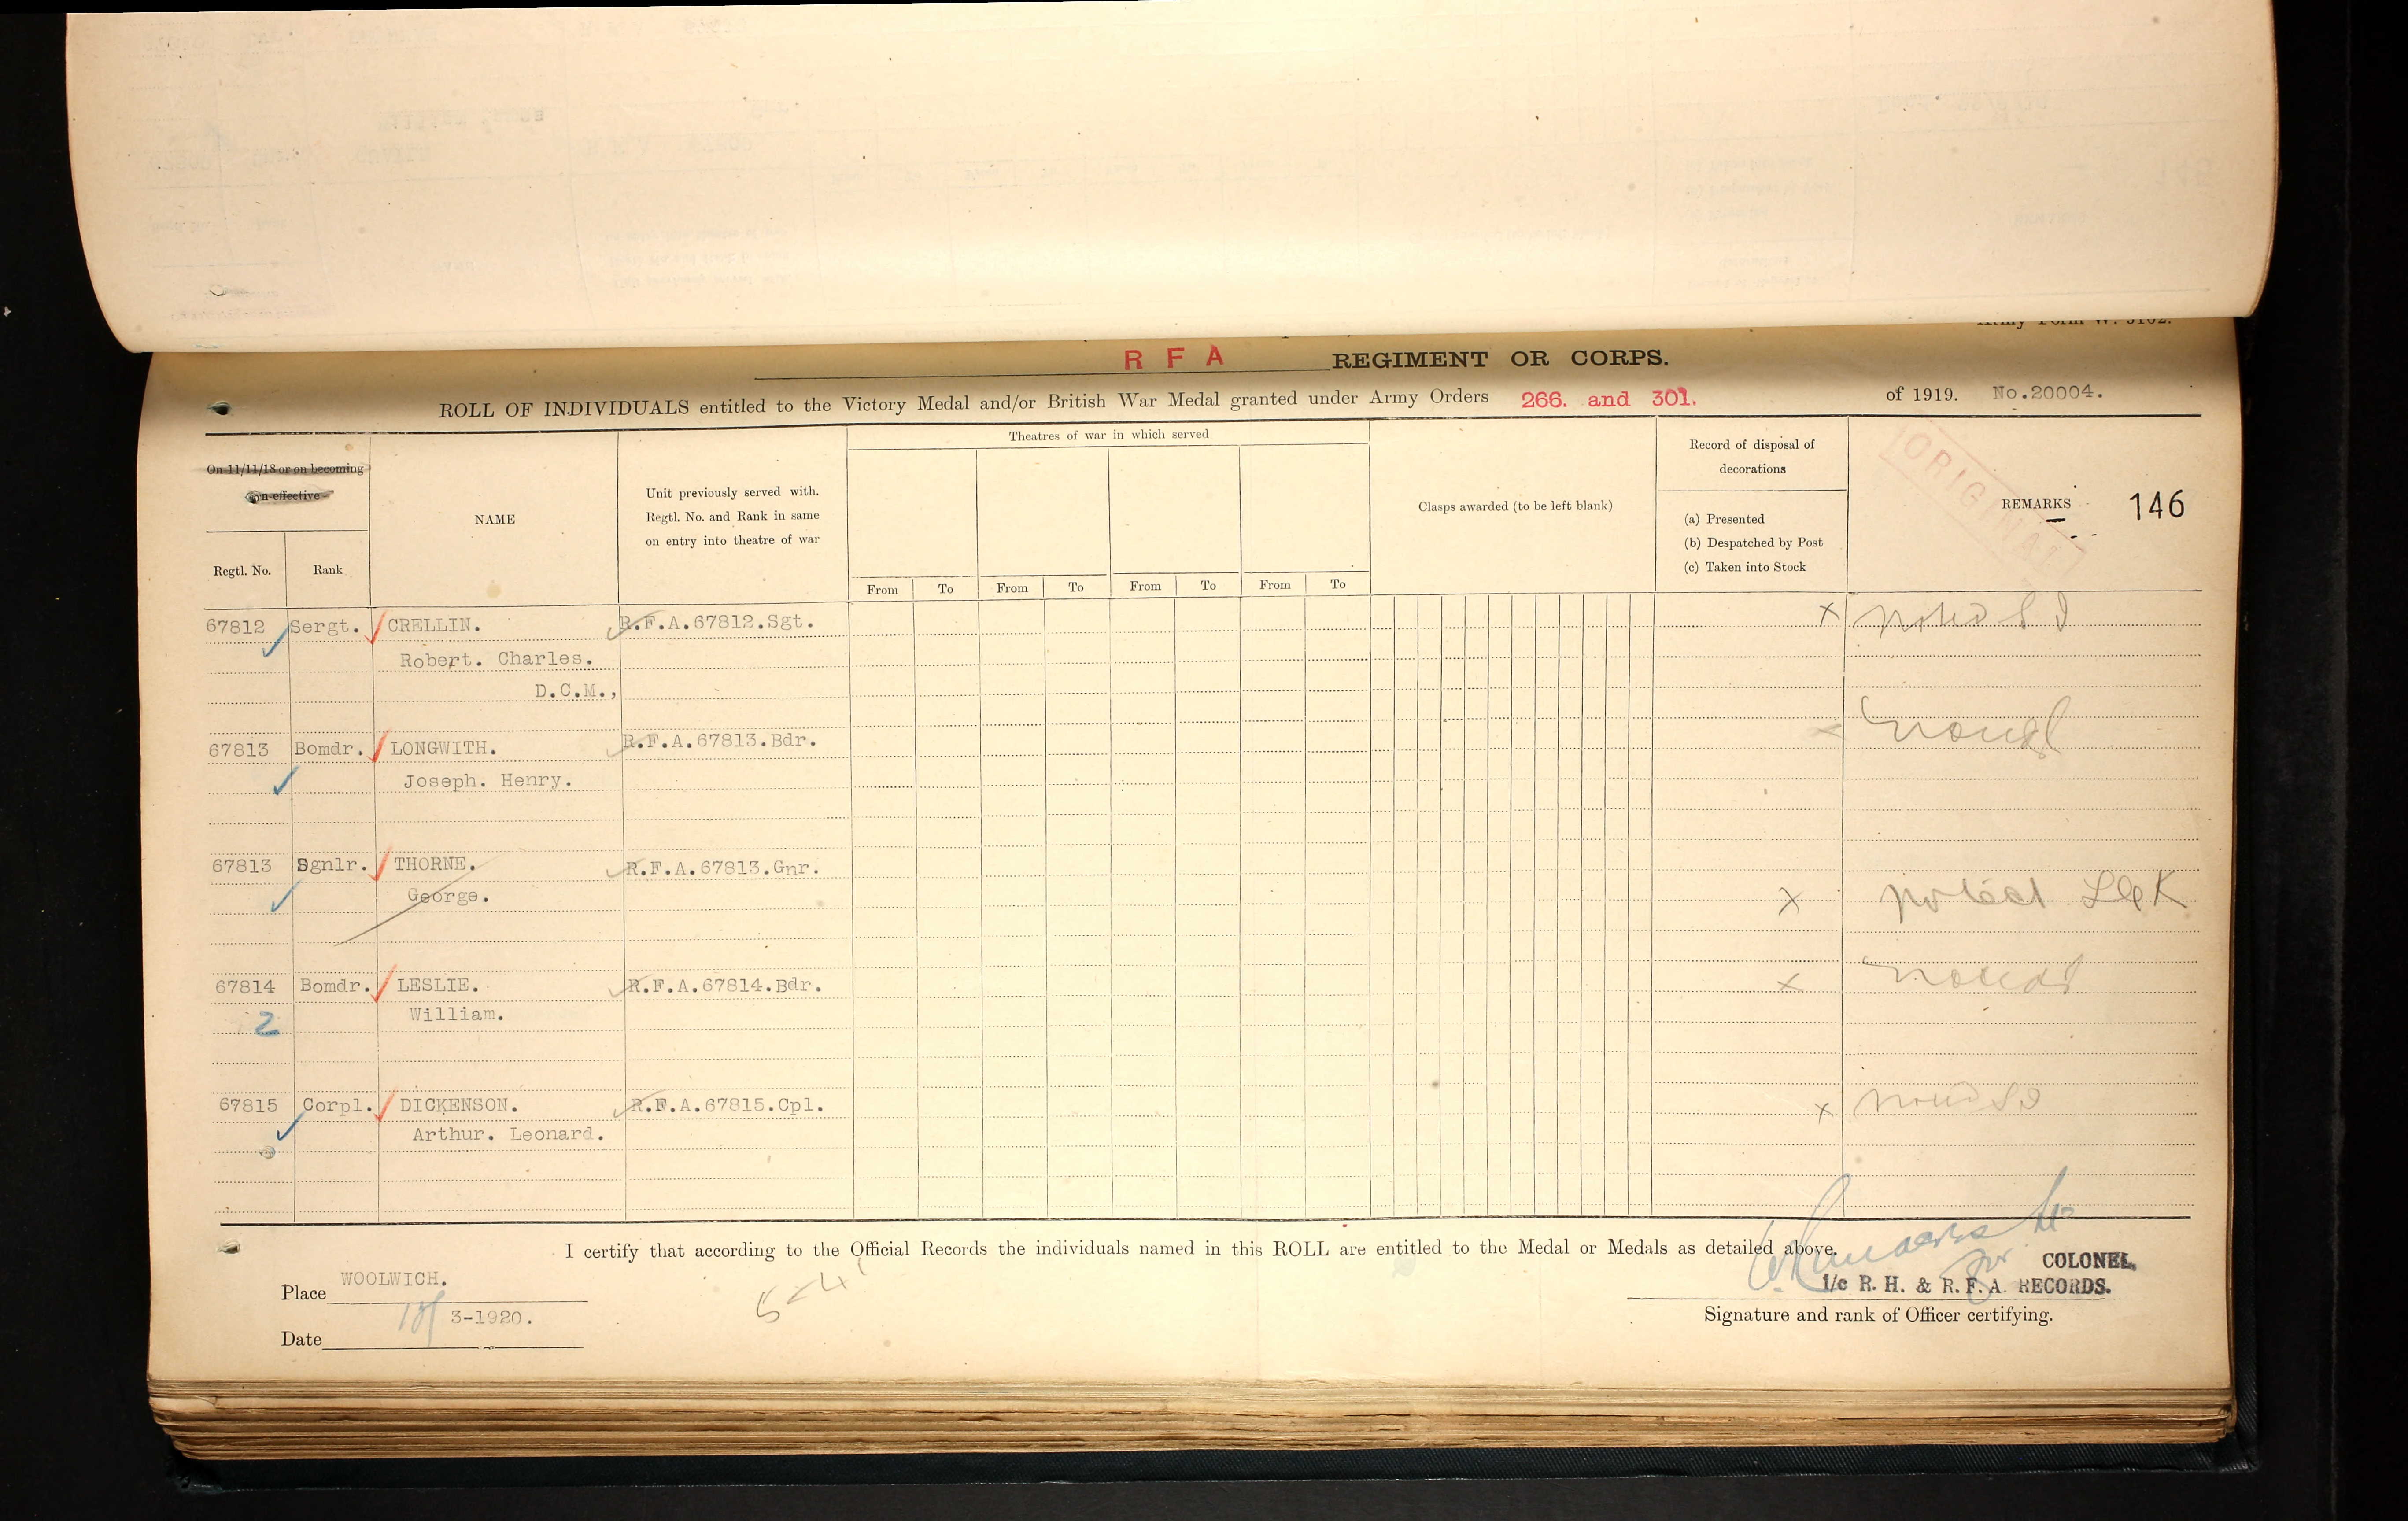 Army Form W. 5102.
R F A REGIMENT OR CORPS.
ROLL OF INDIVIDUALS entitled to the Victory Medal and/or British War Medal granted under Army Orders 266. and 301. of 1919. No.20004.
On 11/11/18 or on becoming
non-effective
Regtl. No.
Rank
NAME
Unit previously served with.
Regtl. No. and Rank in same
on entry into theatre of war
Theatres of war in which served
From To From To From To From To
Clasps awarded (to be left blank)
Record of disposal of
decorations
(a) Presented
(b) Despatched by Post
(c) Taken into Stock
REMARKS
146
ORIGINAL
67812 Sergt. CRELLIN. R.F.A.67812.Sgt. X
Robert. Charles.
D.C.M.,
67813 Bomdr. LONGWITH. R.F.A.67813.Bdr.
Joseph. Henry.
67813 Sgnlr. THORNE. R.F.A.67813.Gnr.
George. X
67814 Bomdr. LESLIE. R.F.A.67814.Bdr. X
2 William.
67815 Corpl. DICKENSON. R.F.A.67815.Cpl. X
Arthur. Leonard.
I certify that according to the Official Records the individuals named in this ROLL are entitled to the Medal or Medals as detailed above.
Place WOOLWICH.
Date 3-1920.
for COLONEL,
I/c R. H. & R. F. A. RECORDS.
Signature and rank of Officer certifying.